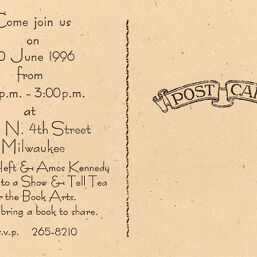 Come join us
on
0 June 1996
from
p.m. - 3:00 p.m.
at
N. 4th Street
Milwaukee
Heft & Amos Kennedy
to a Show & Tell Tea
the Book Arts.
bring a book to share.
s.v.p. 265-8210
POST CA